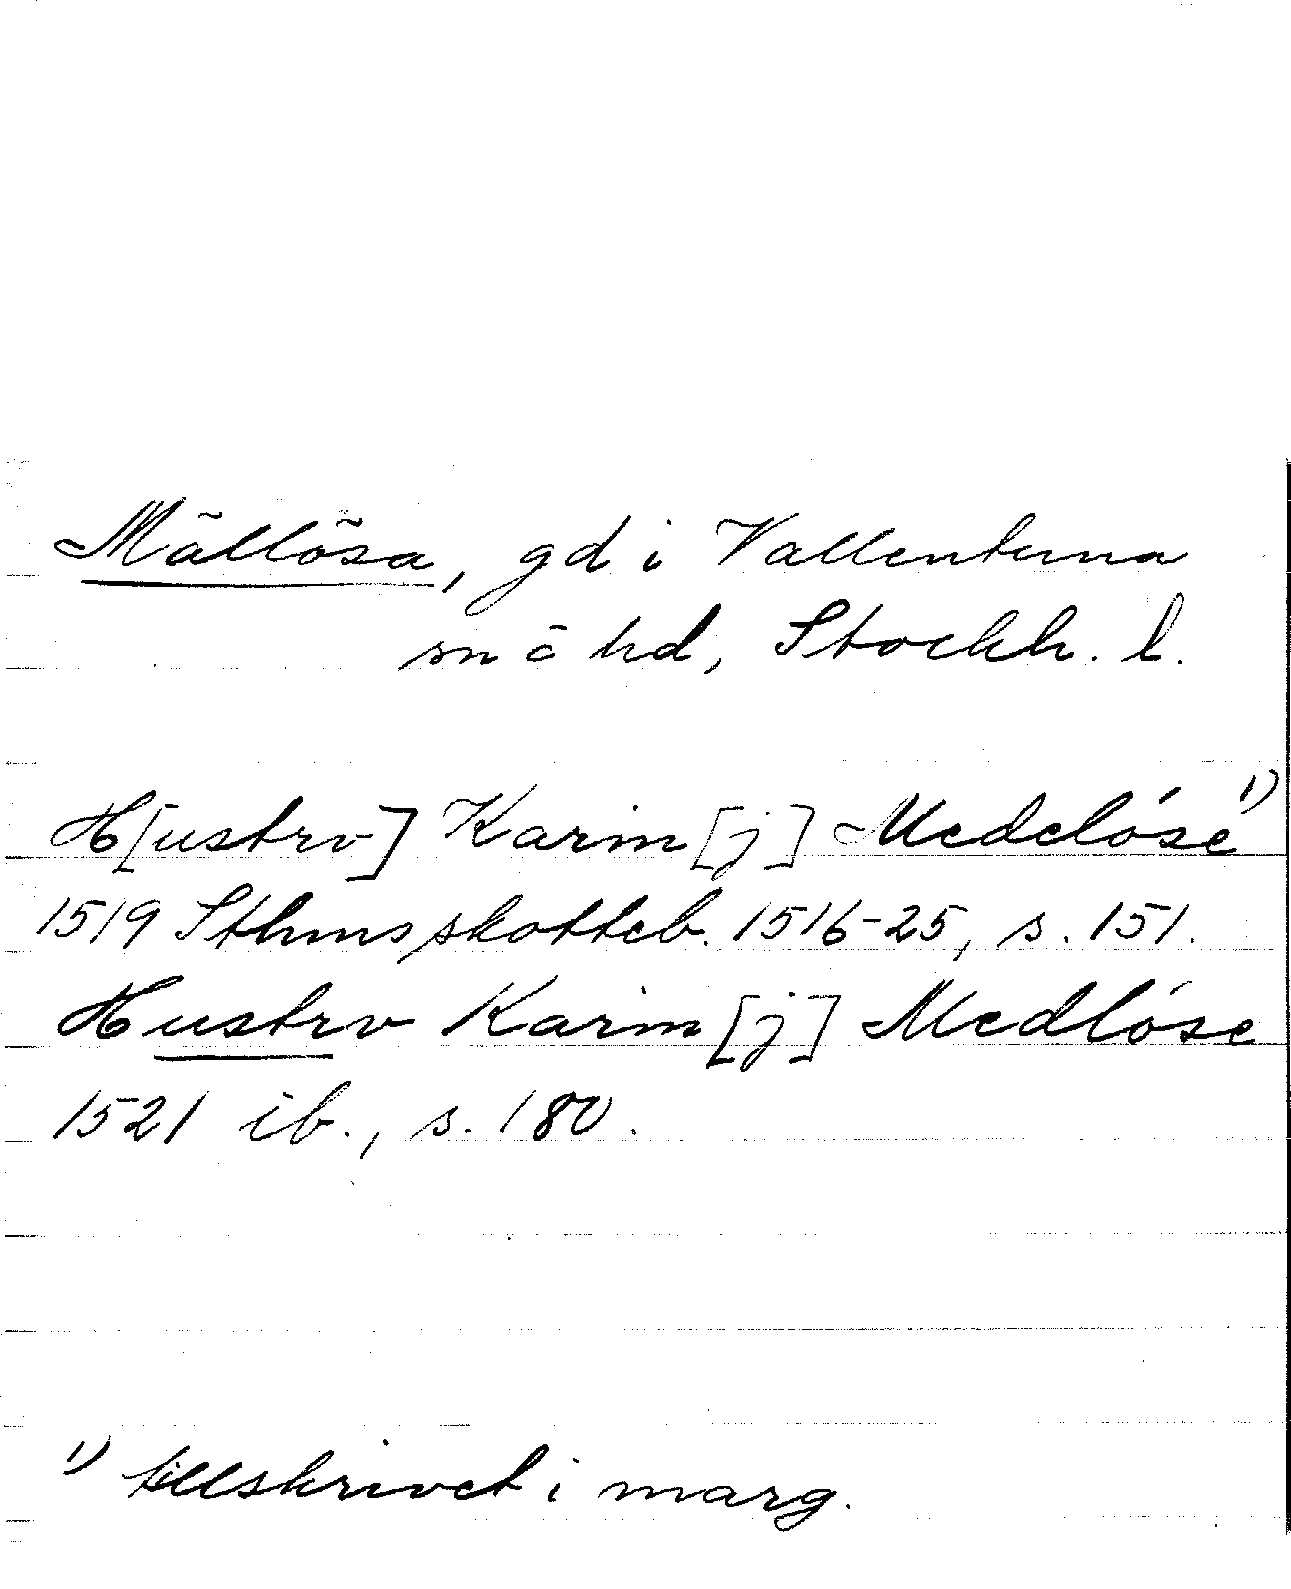 Mällösa, gd i Vallentuna
sn o hd, Stockh. l.
H[ustrv] Karin [j] Medelósé 1)
1519 Sthms skotteb. 1516-25, s. 151.
Hustrv Karin [j] Medlóse
1521 ib., s. 180.
1) tillskrivet i marg.